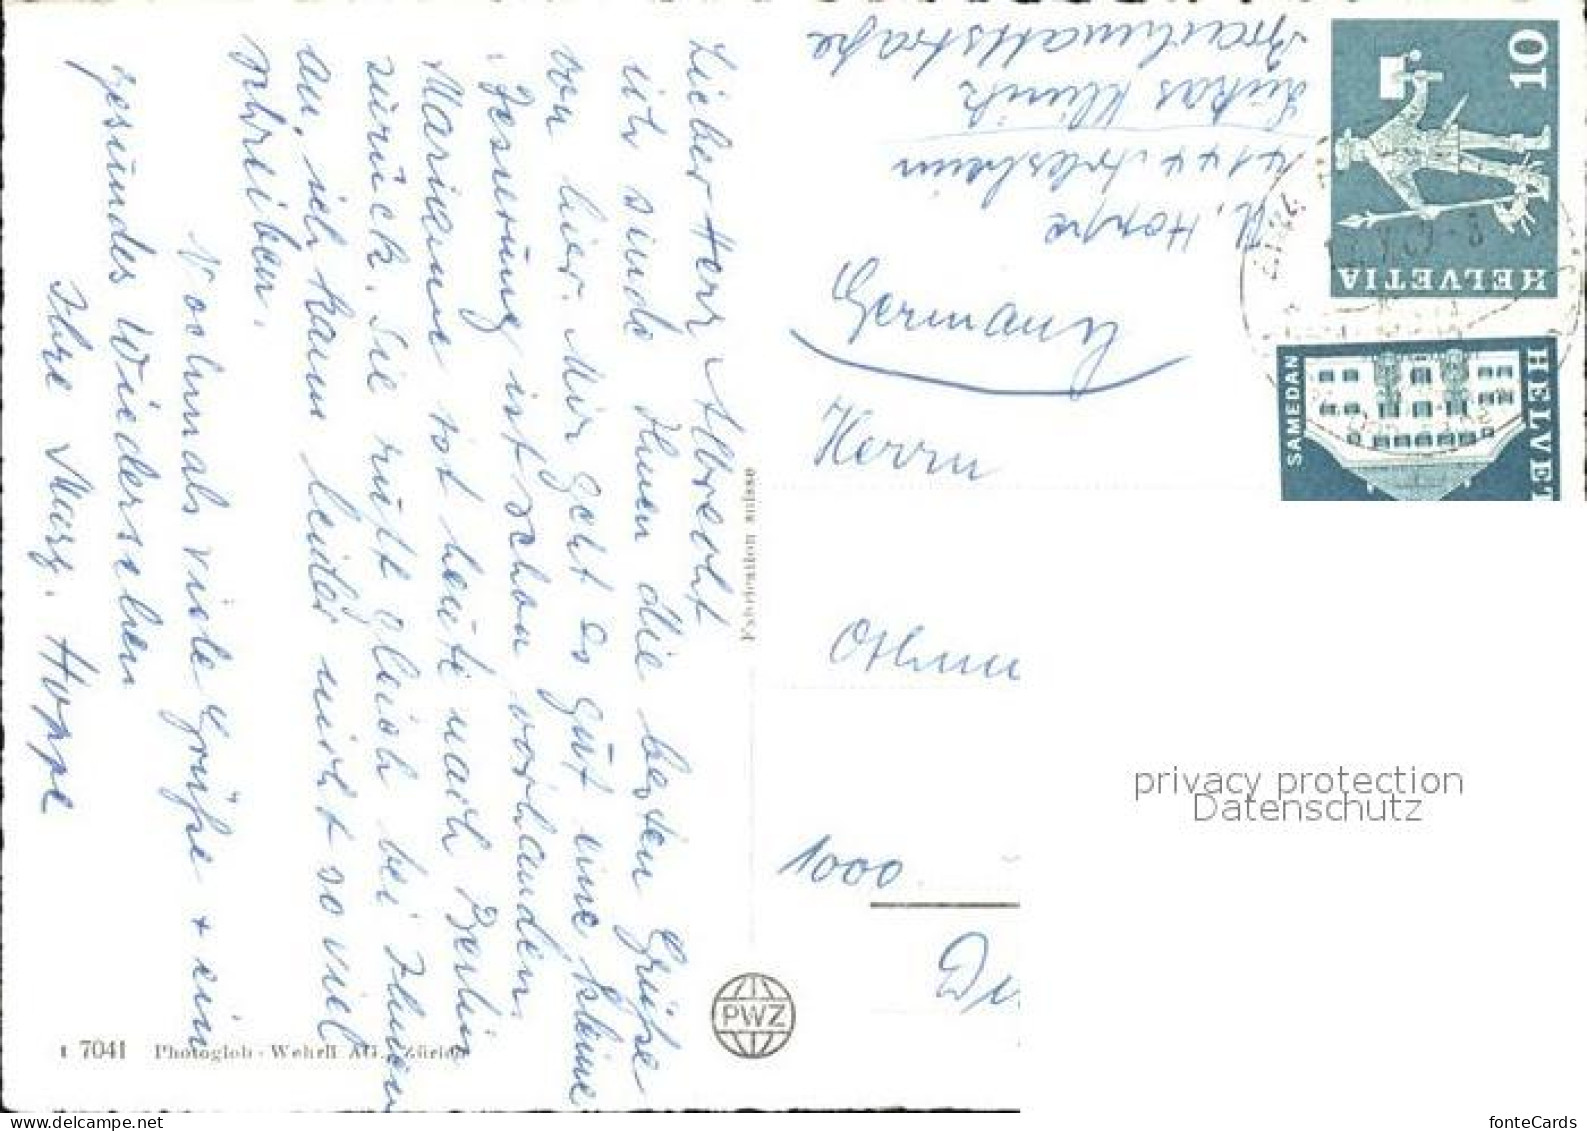 Lieber Herr Albrecht
ich sende Ihnen die besten Grüße
von hier. Mir geht es gut eine kleine
Besserung ist schon vorhanden.
Mariann ist heute nach Berlin
zurück. Sie ruft gleich bei Ihnen
an, ich kann leider nicht so viel
schreiben.
Nochmals viele Grüße + ein
gesundes Wiedersehen
Ihre Marg. Hoppe
t 7041 Photoglob-Wehrli AG., Zürich
Fabrication suisse
PWZ
M. Hoppe
4144 Arlesheim
Lukas Klinik
Brachmattstraße
Germany
Herrn
Othm
1000
HELVETIA
10
HELVET
SAMEDAN
privacy protection
Datenschutz
fonteCards